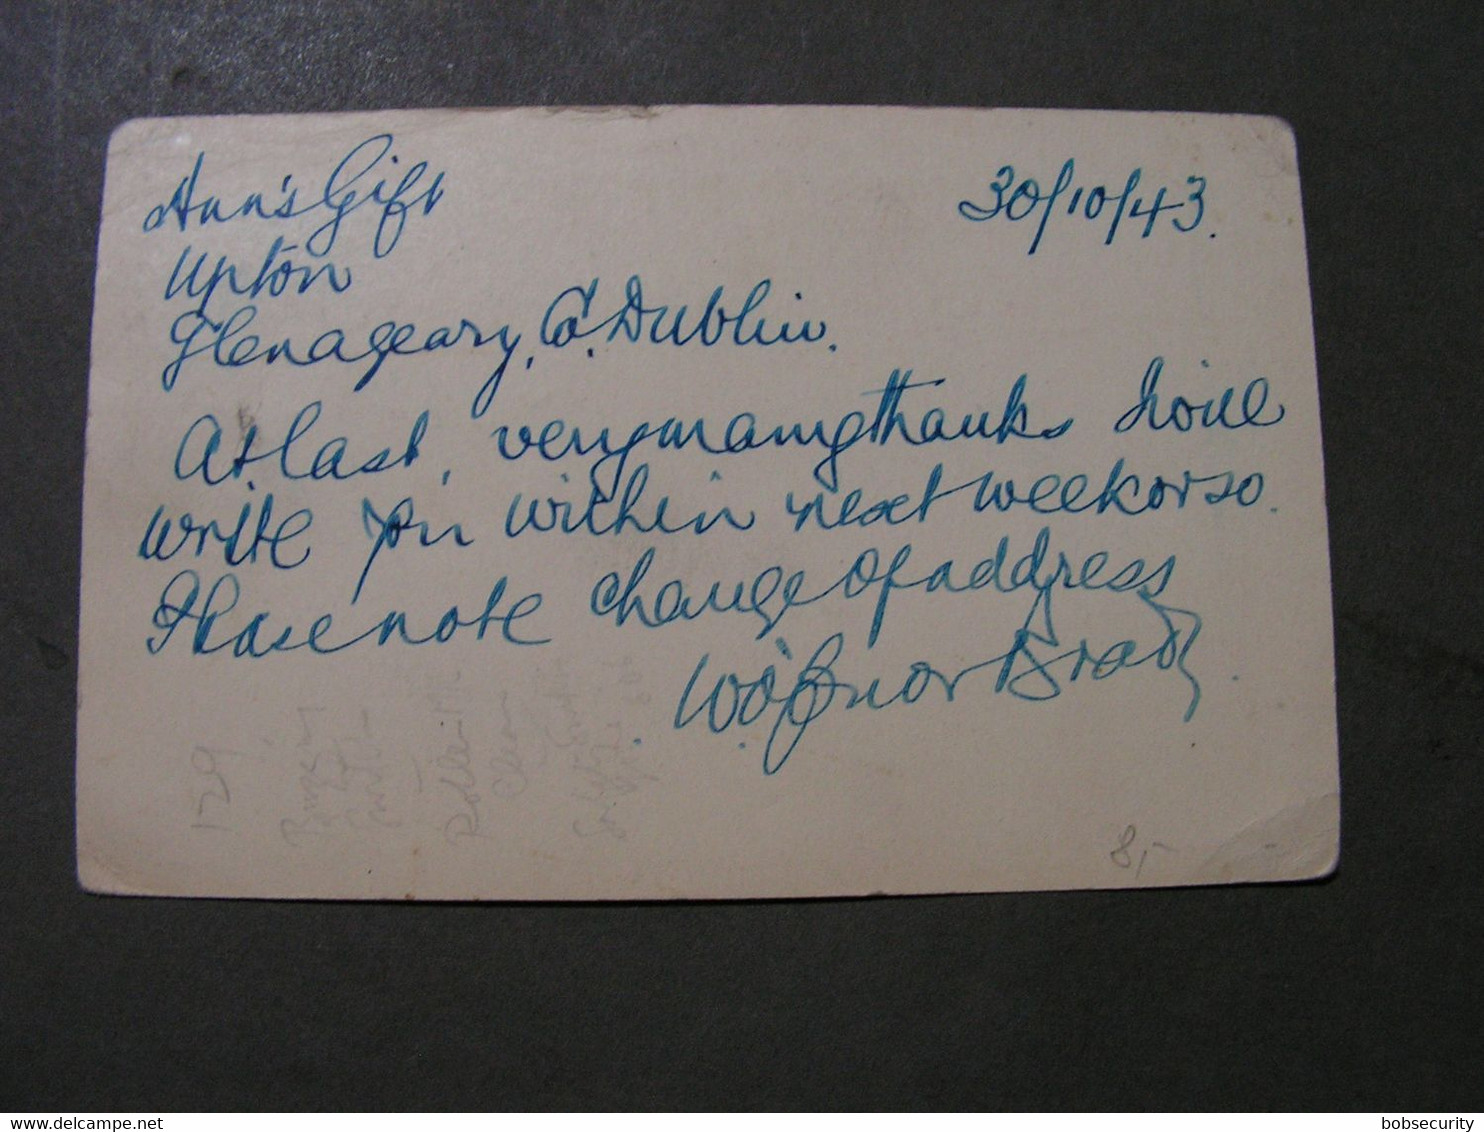 Ann's Gift
30/10/43.
Upton
Glenageary, Co. Dublin.
At last, very many thanks I will
write you within next week or so.
Please note change of address
W. O'Connor Brady
129
Roller
Clean
8,-
bobsecurity